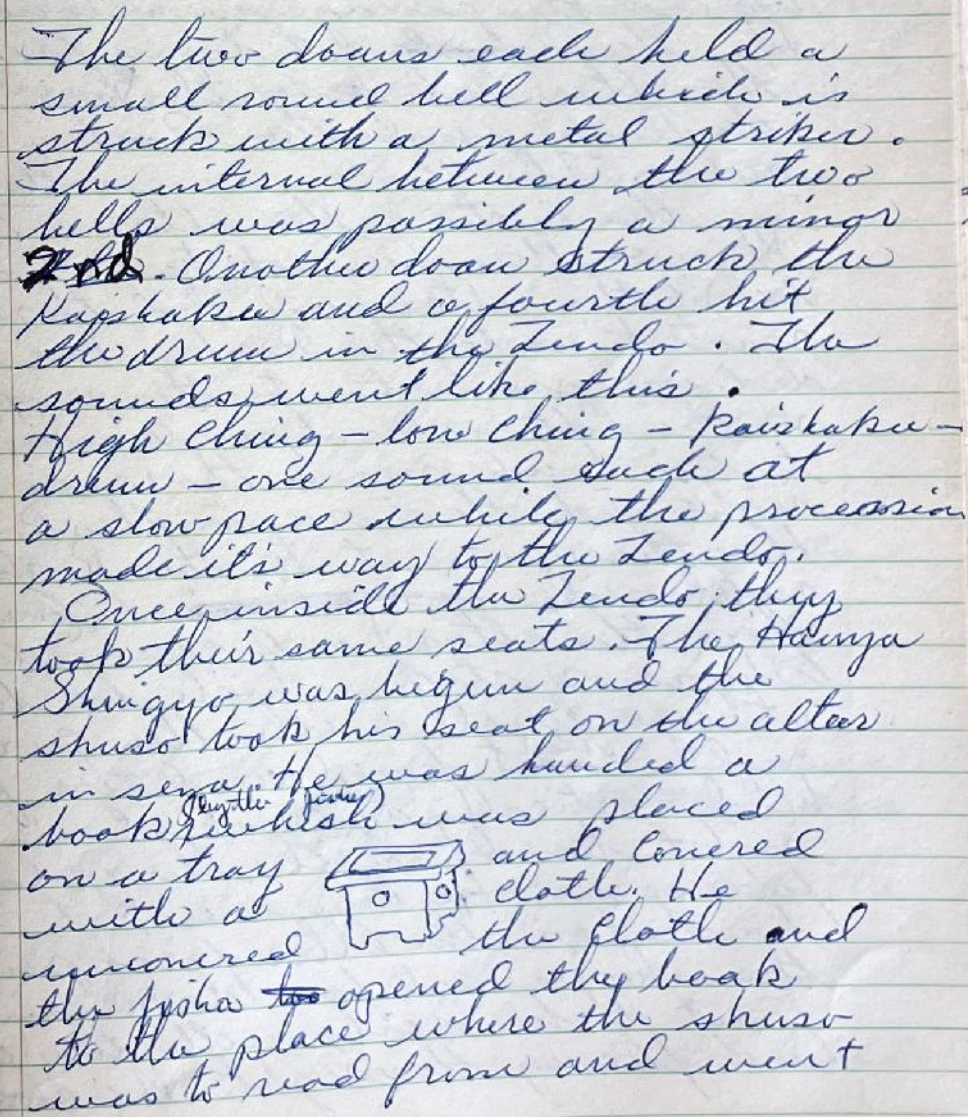 The two doans each held a
small round bell which is
struck with a metal striker.
The interval between the two
bells was possibly a minor
2nd. Another doan struck the
Kaishaku and a fourth hit
the drum in the Zendo. The
sounds went like this.
High Ching – low Ching – Kaishaku –
drum – one sound each at
a slow pace while the procession
made it's way to the Zendo.
Once inside the Zendo, they
took their same seats. The Hannya
Shingyo was begun and the
shuso took his seat on the altar
in seza. He was handed a
(by the jisha)
book which was placed
on a tray and covered
with a cloth. He
uncovered the cloth and
the jisha to opened the book
to the place where the shuso
was to read from and went